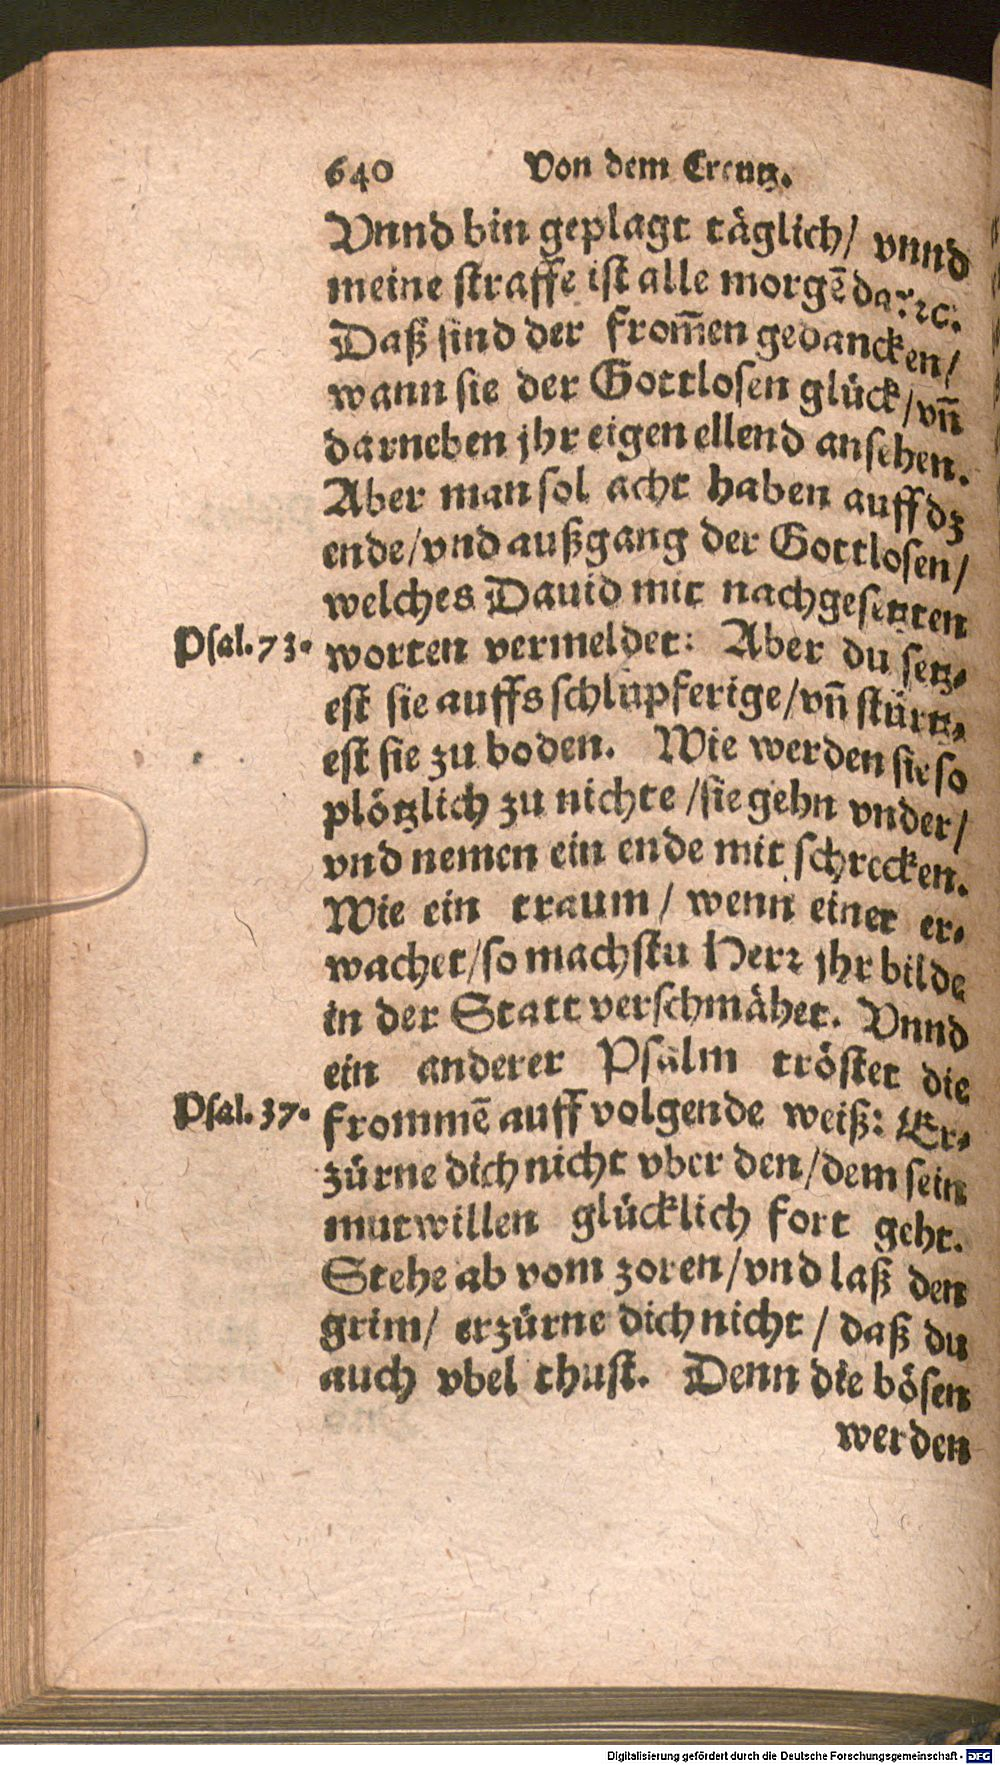 640 Von dem Creutz.
Vnnd bin geplagt täglich/ vnnd
meine straffe ist alle morgē da: ꝛc.
Daß sind der from̄en gedancken/
wann sie der Gottlosen glück/vn̄
darneben jhr eigen ellend ansehen.
Aber man sol acht haben auff dz
ende/vnd außgang der Gottlosen/
welches Dauid mit nachgesetzten
Psal. 73. worten vermeldet: Aber du setz-
est sie auffs schlupferige/vn̄ stürtz-
est sie zu boden. Wie werden sie so
plötzlich zu nichte /sie gehn vnder/
vnd nemen ein ende mit schrecken.
Wie ein traum/ wenn einer er-
wachet/so machstu Herꝛ jhr bilde
in der Statt verschmähet. Vnnd
ein anderer Psalm tröstet die
Psal. 37. frommē auff volgende weiß: Er-
zürne dich nicht vber den/dem sein
mutwillen glücklich fort geht.
Stehe ab vom zoren/vnd laß den
grim/ erzürne dich nicht / daß du
auch vbel thust. Denn die bösen
werden
Digitalisierung gefördert durch die Deutsche Forschungsgemeinschaft - DFG